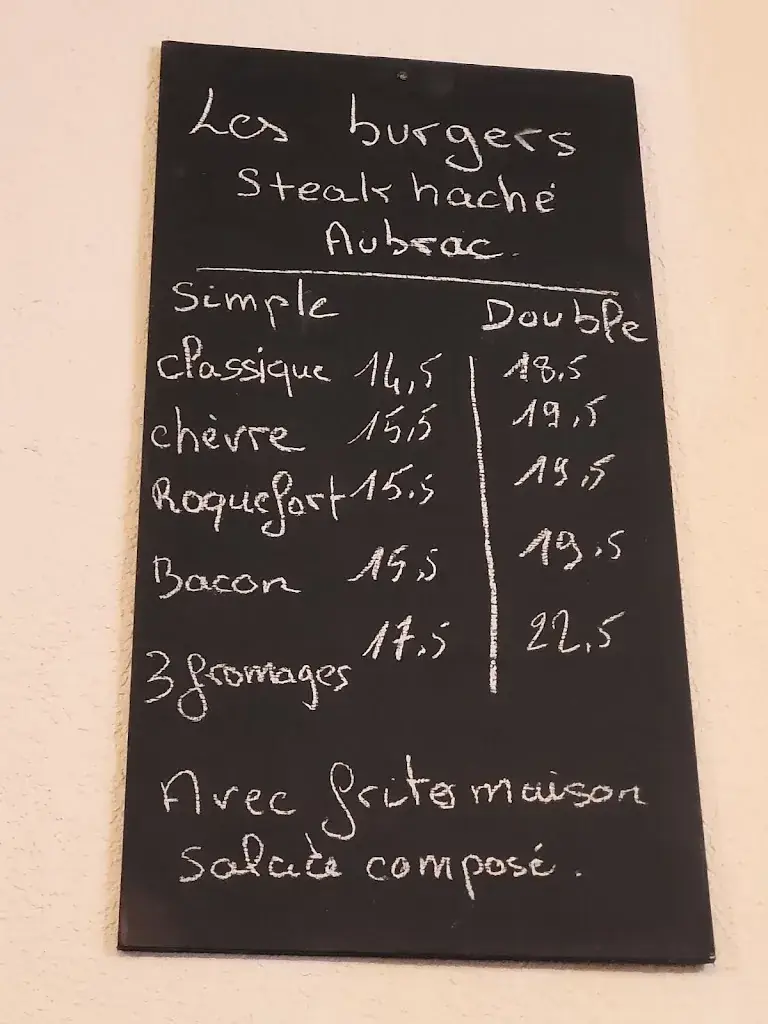 Les burgers
Steak haché
Aubrac.
Simple Double
classique 14,5 18,5
chèvre 15,5 19,5
Roquefort 15.5 19,5
Bacon 15,5 19.5
3 fromages 17.5 22,5
Avec frites maison
Salade composé.